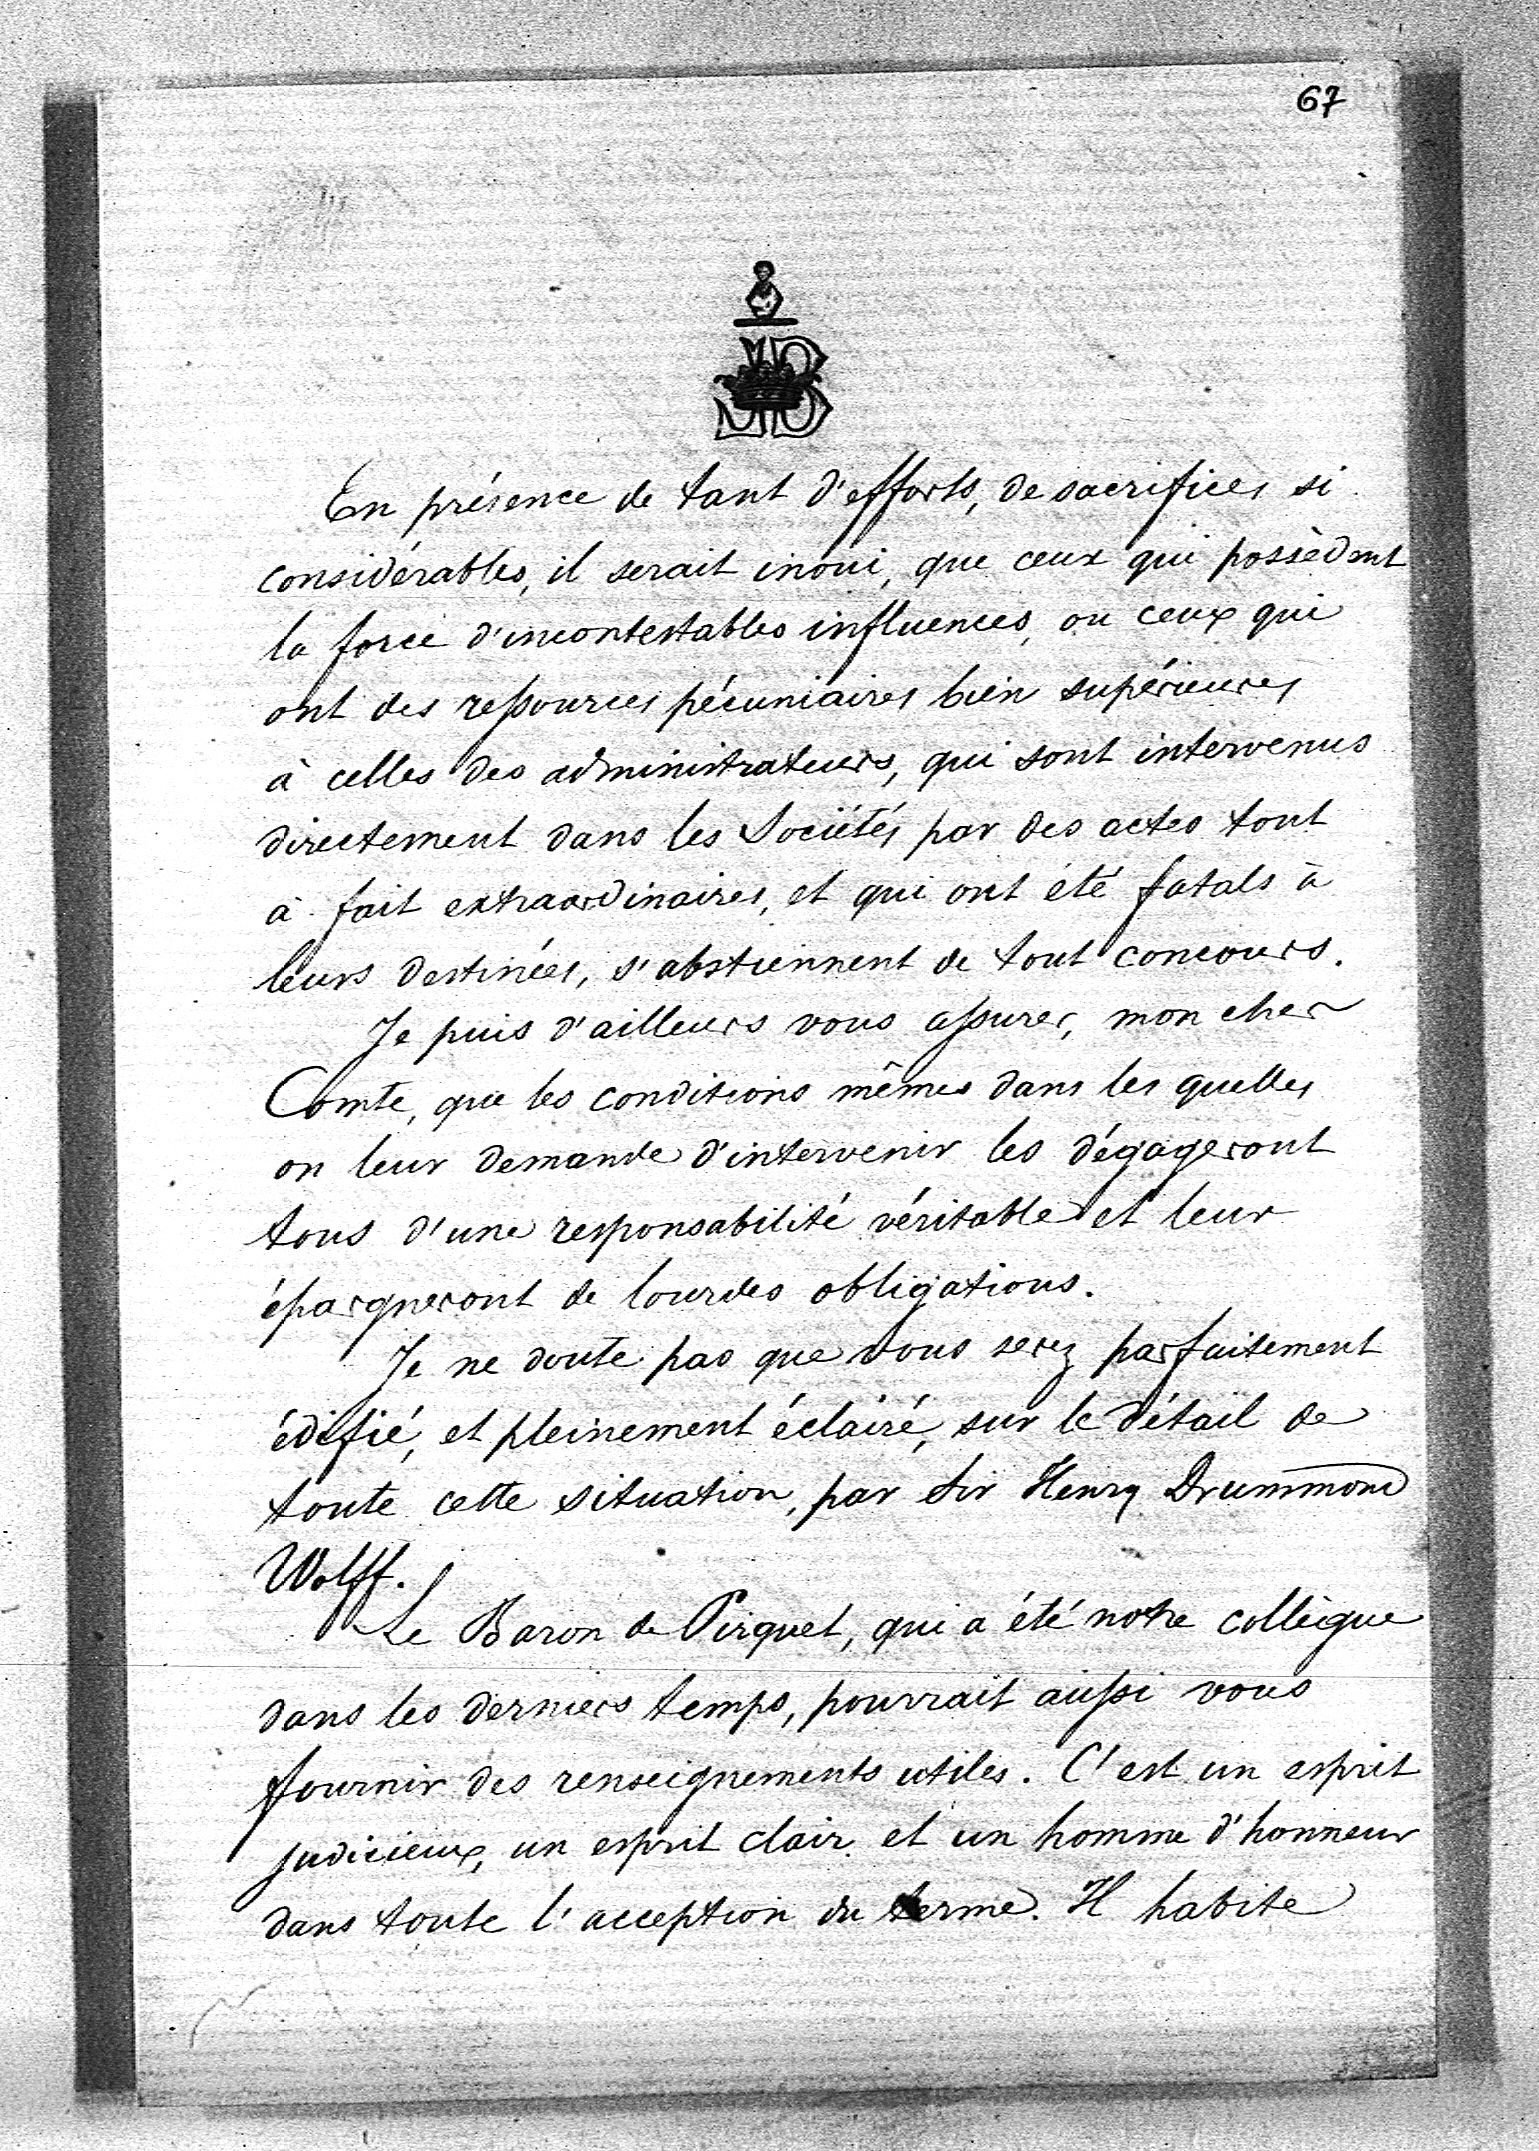 67
JB
En présence de tant d'efforts, de sacrifices si
considérables, il serait inoui, que ceux qui possèdent
la force d'incontestables influences, ou ceux qui
ont des ressources pécuniaires bien supérieures
à celles des administrateurs, qui sont intervenus
directement dans les Sociétés par des actes tout
à fait extraordinaires, et qui ont été fatals à
leurs destinées, s'abstiennent de tout concours.
Je puis d'ailleurs vous assurer, mon cher
Comte, que les conditions mêmes dans les quelles
on leur demande d'intervenir les dégageront
tous d'une responsabilité véritable et leur
épargneront de lourdes obligations.
Je ne doute pas que vous serez parfaitement
édifié, et pleinement éclairé, sur le détail de
toute cette situation, par Sir Henry Drummond
Wolff.
Le Baron de Pirquet, qui a été notre collègue
dans les derniers temps, pourrait aussi vous
fournir des renseignements utiles. C'est un esprit
judicieux, un esprit clair et un homme d'honneur
dans toute l'acception du terme. Il habite